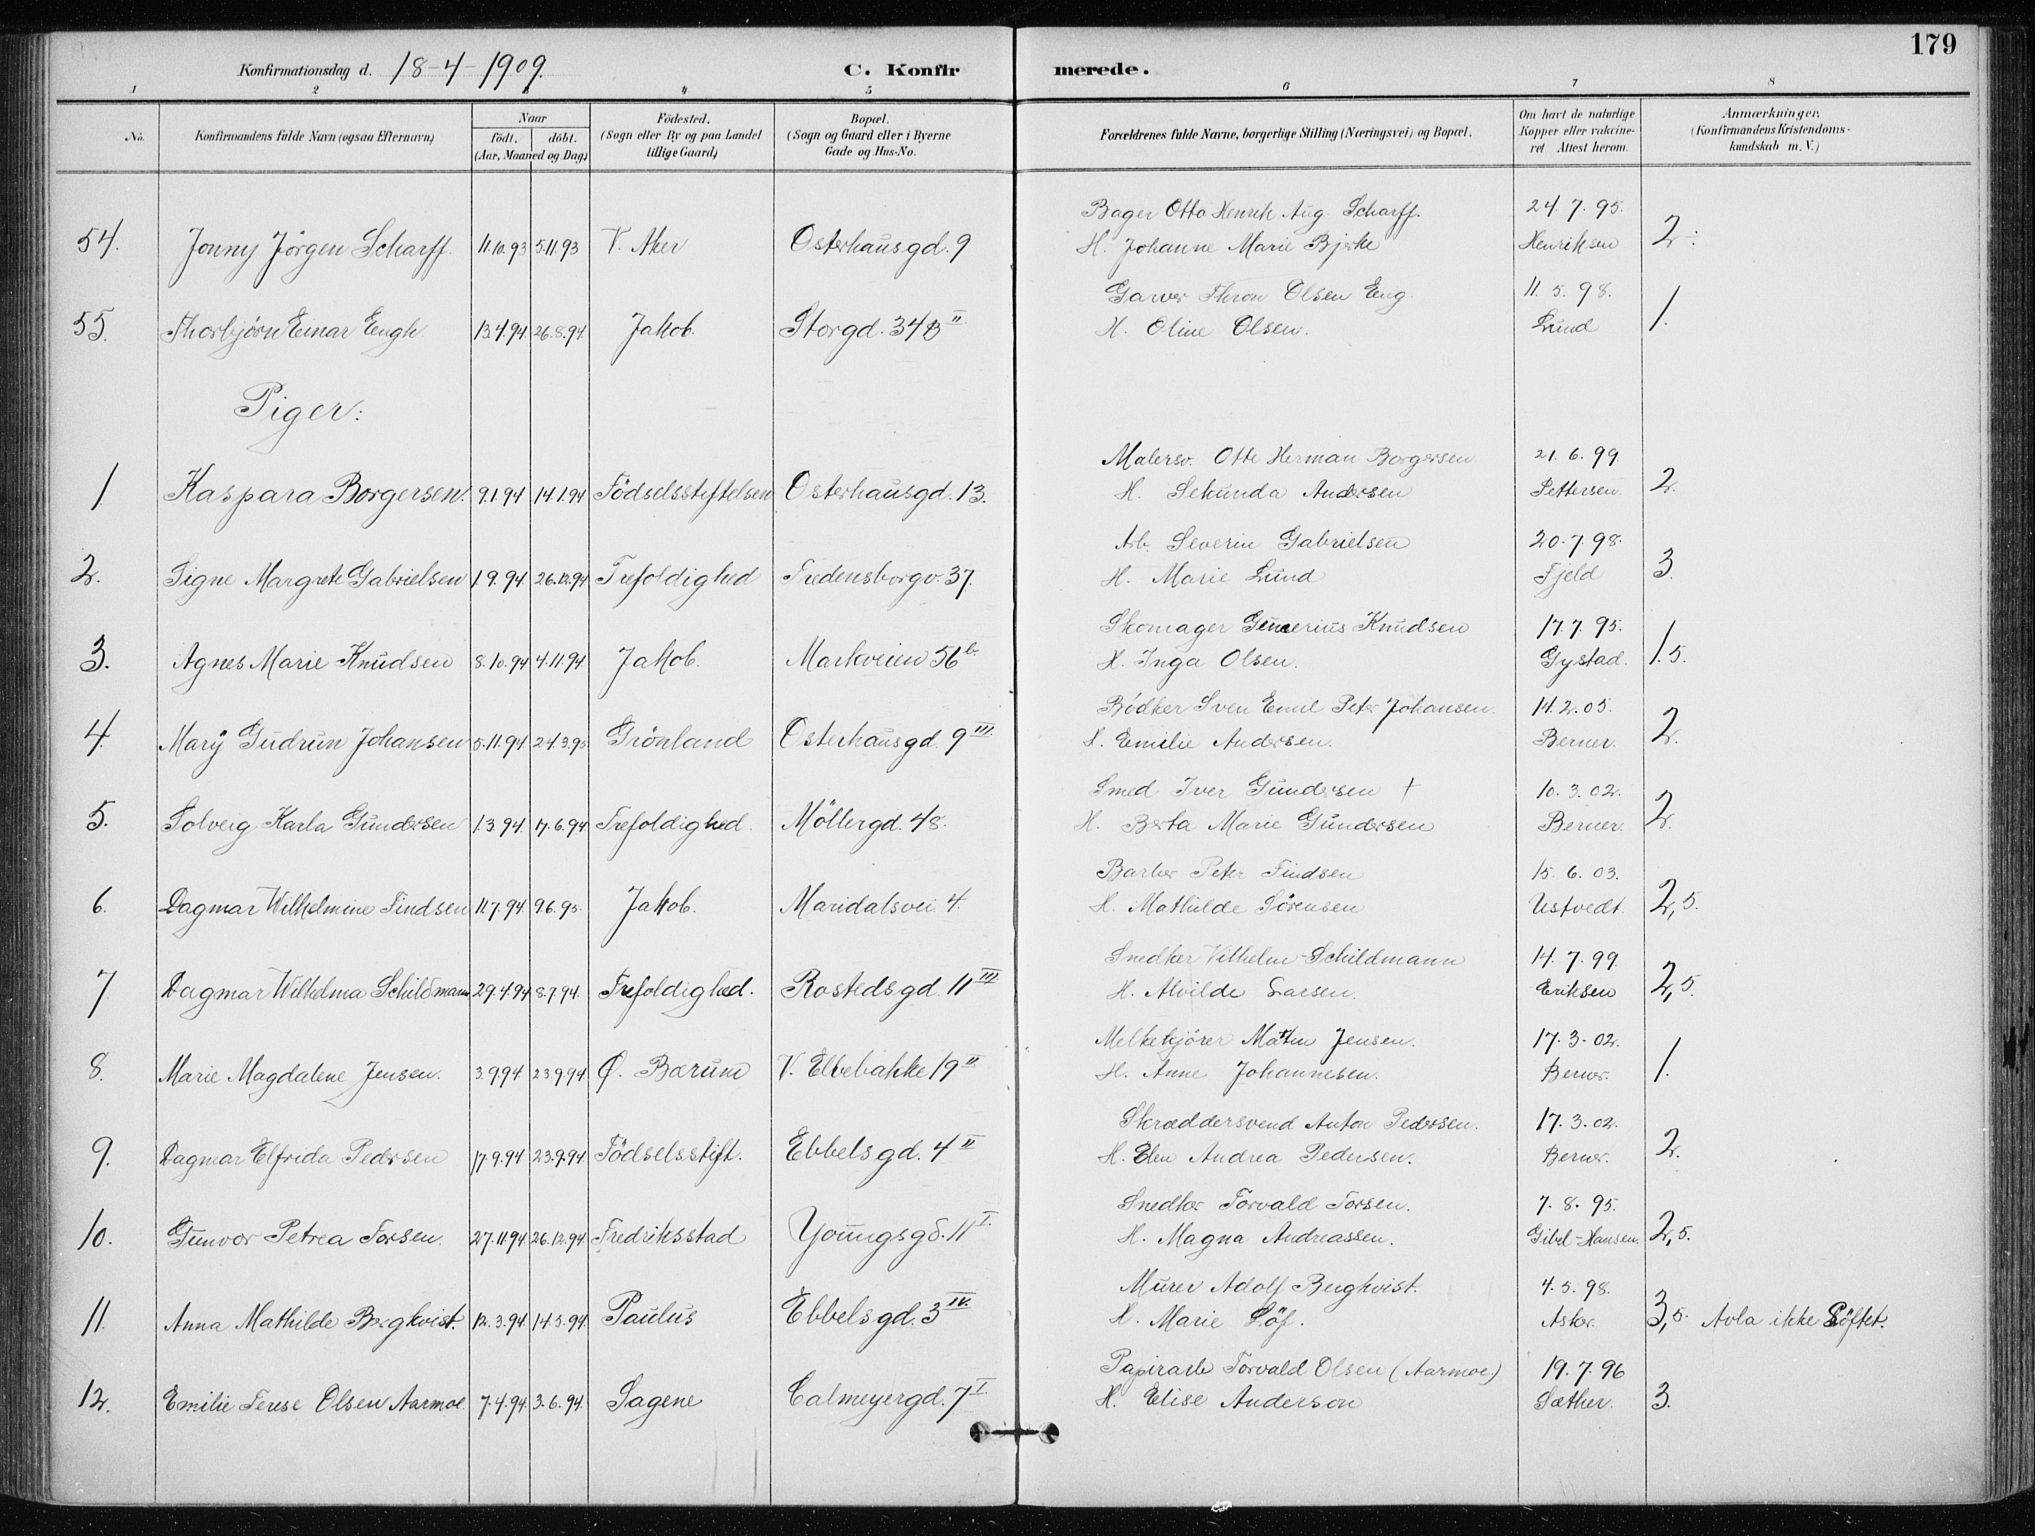 179
Konfirmationsdag d. 18-4-1909. C. Konfirmerede.
1 2 3 4 5 6 7 8
No. Konfirmandens fulde Navn (ogsaa Efternavn) Naar født. døbt. (Aar, Maaned og Dag) Fødested. (Sogn eller By og paa Landet tillige Gaard) Bopæl. (Sogn og Gaard eller i Byerne Gade og Hus-No. Forældrenes fulde Navne, borgerlige Stilling (Næringsvei) og Bopæl. Om havt de naturlige Kopper eller vakcineret Attest herom. Anmærkninger. (Konfirmandens Kristendomskundskab m. V.)
Bager Otto Henrik Aug. Scharff. 24.7.95.
54. Jonny Jørgen Scharff. 11.10.93 5.11.93 V. Aker Osterhausgd. 9 H. Johanne Marie Bjerke Henriksen 2
Garver Thron Olsen Eng. 11.5.98.
55. Thorbjørn Einar Engh 13.4.94. 26.8.94. Jakob. Storgd. 34B II H. Oline Olsen. Lund 1.
Piger:
Malersv. Otto Herman Borgersen 21.6.99.
1 Kaspara Borgersen. 9.1.94 14.1.94 Födselsstiftelsen Osterhausgd. 13. H. Sekunda Andersen Pettersen. 2.
Arb. Severin Gabrielsen 20.7.98.
2. Signe Margrete Gabrielsen 1.9.94 26.12.94 Trefoldighed Fredensborgv. 37. H. Marie Lund Fjeld 3.
Skomager Knudsen 17.7.95.
3. Agnes Marie Knudsen 8.10.94 4.11.94 Jakob. Markveien 56 b. H. Inga Olsen. Gystad. 1.5.
Bödker Sven Emil Peter Johansen. 14.2.05.
4. Mary Gudrun Johansen 5.11.94 24.3.95 Grönland Osterhausgd. 9 III H. Emilie Andersen. Berner. 2.
Smed Iver Gundersen † 10.3.02.
5. Solveig Karla Gundersen 1.3.94 17.6.94. Trefoldighed. Möllergd. 48. H. Berta Marie Gundersen Berner. 2.
Barber Peter Findsen 15.6.03.
6. Dagmar Wilhelmine Findsen 11.7.94 9.6.95. Jakob. Maridalsvei 4. H. Mathilde Sörensen Ustvedt. 2,5.
Snedker Vilhelm Schildmann 14.7.99.
7 Dagmar Wilhelma Schildmann 29.4.94 8.7.94. Trefoldighed. Rostedsgd. 11 III H. Alvilde Larsen. Eriksen 2,5.
Melkekjörer Martin Jensen. 17.3.02.
8. Marie Magdalene Jensen. 3.9.94 23.9.94 Ø. Bærum V. Elvebakke 19 II H. Anne Johannesen. Berner. 1.
Skræddersvend Anton Pedersen. 17.3.02.
9. Dagmar Elfrida Pedersen 17.9.94 23.9.94. Födselsstift. Ebbelsgd. 4 II H. Elen Andrea Pedersen. Berner. 2.
Snedker Torvald Torsen. 7.8.95.
10. Gunvor Petrea Torsen. 27.11.94 26.12.94. Fredriksstad Youngsgd. 11 I. H. Magna Andreassen. Gibel-Hansen. 2,5.
Murer Adolf Bergkvist. 4.5.98.
11. Anna Mathilde Bergkvist. 12.3.94 14.5.94. Paulus Ebbelsgd. 3 IV. H. Marie Löf. Asker. 3,5. Avla ikke Löftet.
Papirarb Torvald Olsen (Aarmoe) 19.7.96
12. Emilie Terese Olsen Aarmoe. 7.4.94. 3.6.94. Sagene Calmeyergd. 7 I. H. Elise Anderson Sæther. 3.